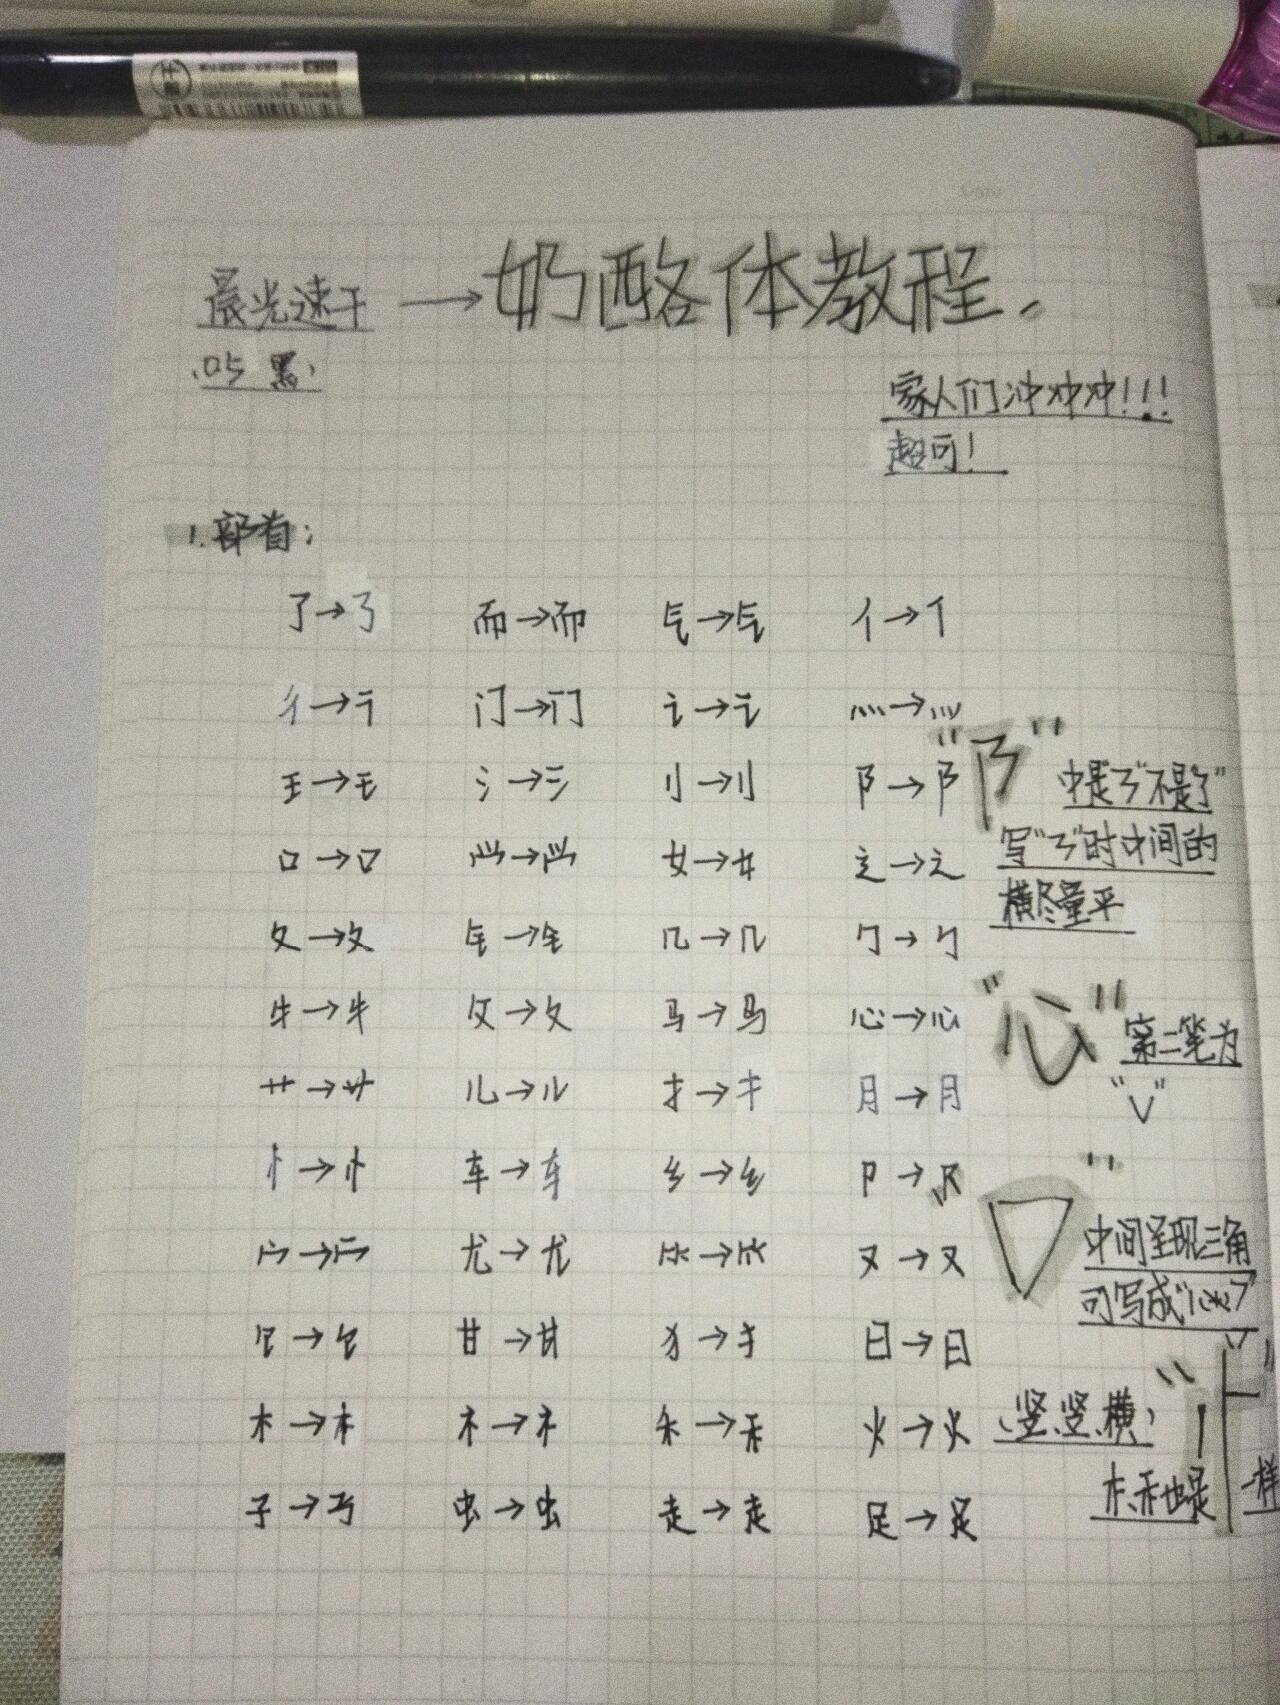 奶酪体教程.
晨光速干→
.05 黑.
家人们冲冲冲!!!
超可!
1.部首:
了→了 而→而 气→气 亻→亻
彳→彳 门→门 讠→讠 灬→灬
王→王 氵→氵 刂→刂 阝→阝
口→口 𫩏→𫩏 女→女 辶→辶
夂→夂 钅→钅 几→几 勹→勹
牛→牛 攵→攵 马→马 心→心
艹→艹 儿→儿 扌→扌 月→月
忄→忄 车→车 纟→纟 卩→卩
宀→宀 尤→尤 ⺮→⺮ 又→又
饣→饣 甘→甘 犭→犭 日→日
木→木 礻→礻 禾→禾 火→火
子→子 虫→虫 走→走 足→足
"阝"
中是"ㄋ"不是"了"
写"ㄋ"时中间的
横尽量平
"心"
第二笔为
"V"
中间呈现三角
竖竖横
一样